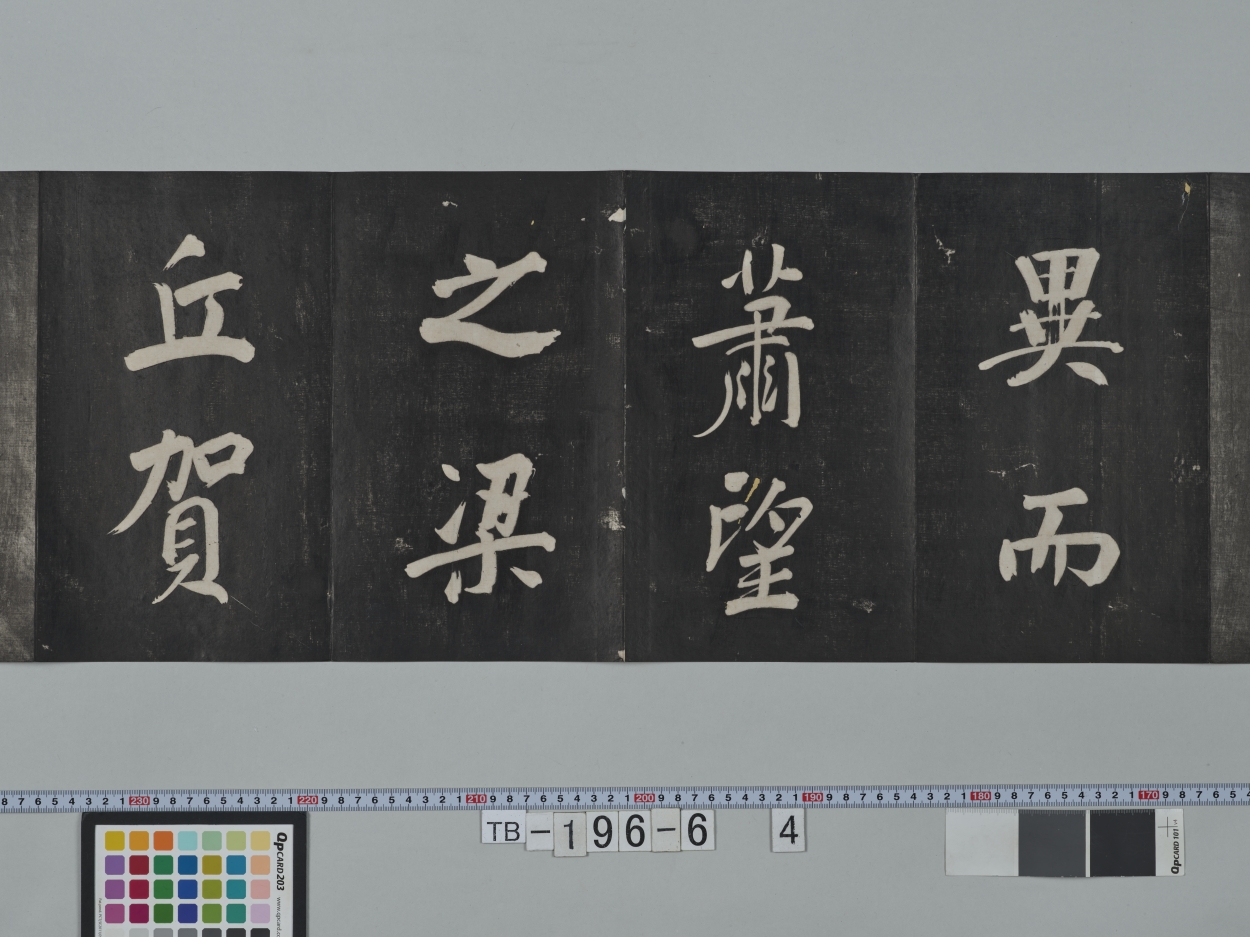 異而
蕭望
之梁
丘賀
8 7 6 5 4 3 2 1 230 9 8 7 6 5 4 3 2 1 220 9 8 7 6 5 4 3 2 1 210 9 8 7 6 5 4 3 2 1 200 9 8 7 6 5 4 3 2 1 190 9 8 7 6 5 4 3 2 1 180 9 8 7 6 5 4 3 2 1 170 9 8 7 6 5 4
TB-196-6 4
QPCARD 203
QPCARD 101